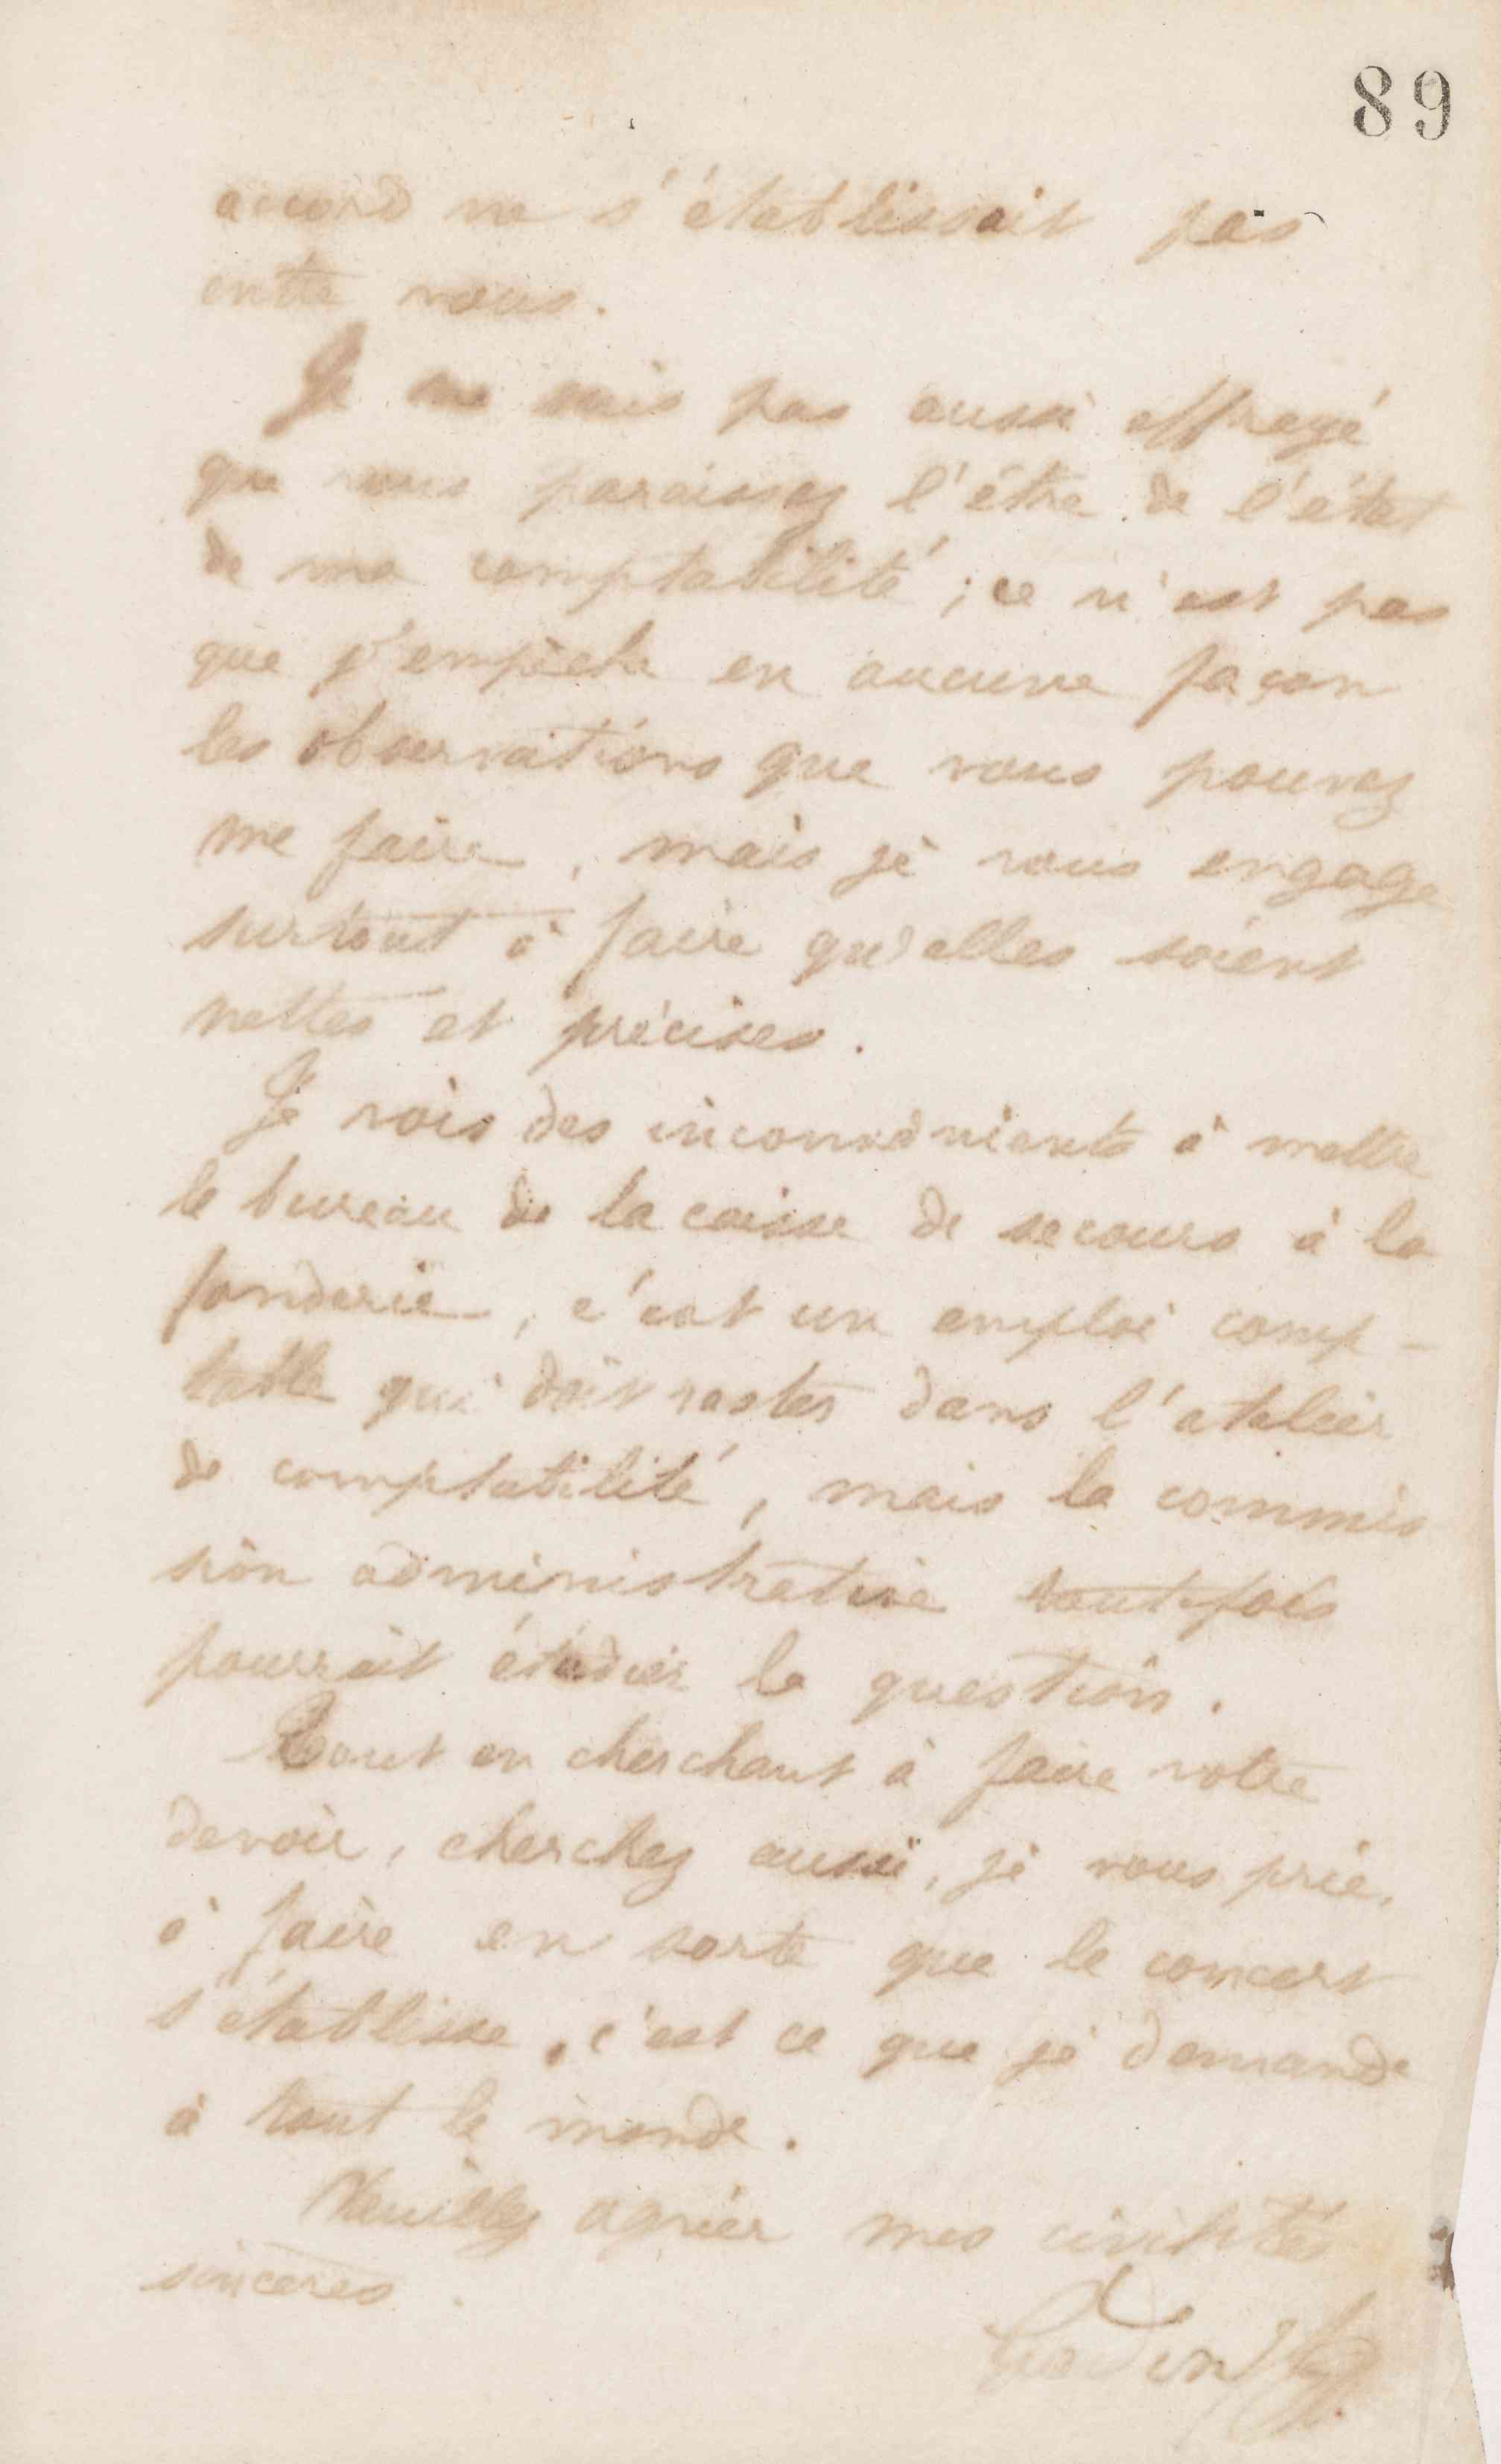 89
accord ne s'établissait pas
entre vous.
Je ne suis pas aussi effrayé
que vous paraissez l'être de l'état
de ma comptabilité ; ce n'est pas
que j'empêche en aucune façon
les observations que vous pouvez
me faire, mais je vous engage
surtout à faire qu'elles soient
nettes et précises.
Je vois des inconvénients à mettre
le bureau de la caisse de secours à la
fonderie, c'est un emploi comp-
table qui doit rester dans l'atelier
de comptabilité, mais la commis
sion administrative toutefois
pourrait étudier la question.
Tout en cherchant à faire votre
devoir, cherchez aussi, je vous prie,
à faire en sorte que le concert
s'établisse, c'est ce que je demande
à tout le monde.
Veuillez agréer mes civilités
sincères.
Godin